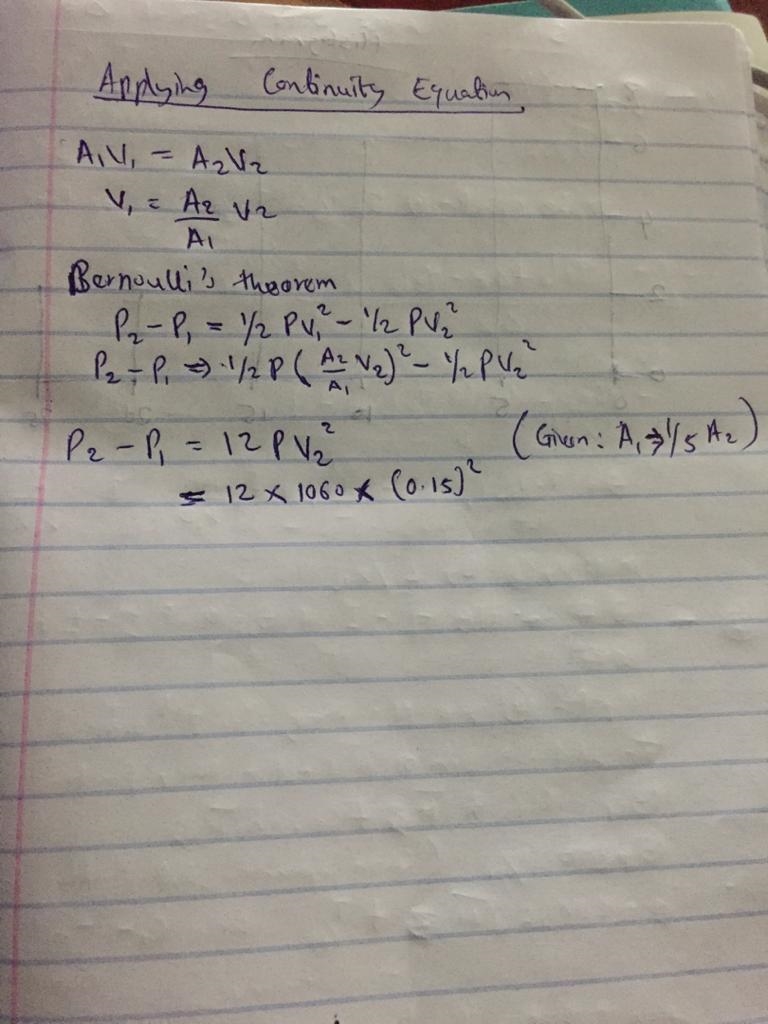 Applying Continuity Equation
A₁V₁ = A₂V₂
V₁ = A₂/A₁ V₂
Bernoulli's theorem
P₂ - P₁ = 1/2 PV₁² - 1/2 PV₂²
P₂ - P₁ ⇒ 1/2 P (A₂/A₁ V₂)² - 1/2 PV₂²
P₂ - P₁ = 12 PV₂² (Given: A₁ ⇒ 1/5 A₂)
= 12 × 1060 × (0.15)²